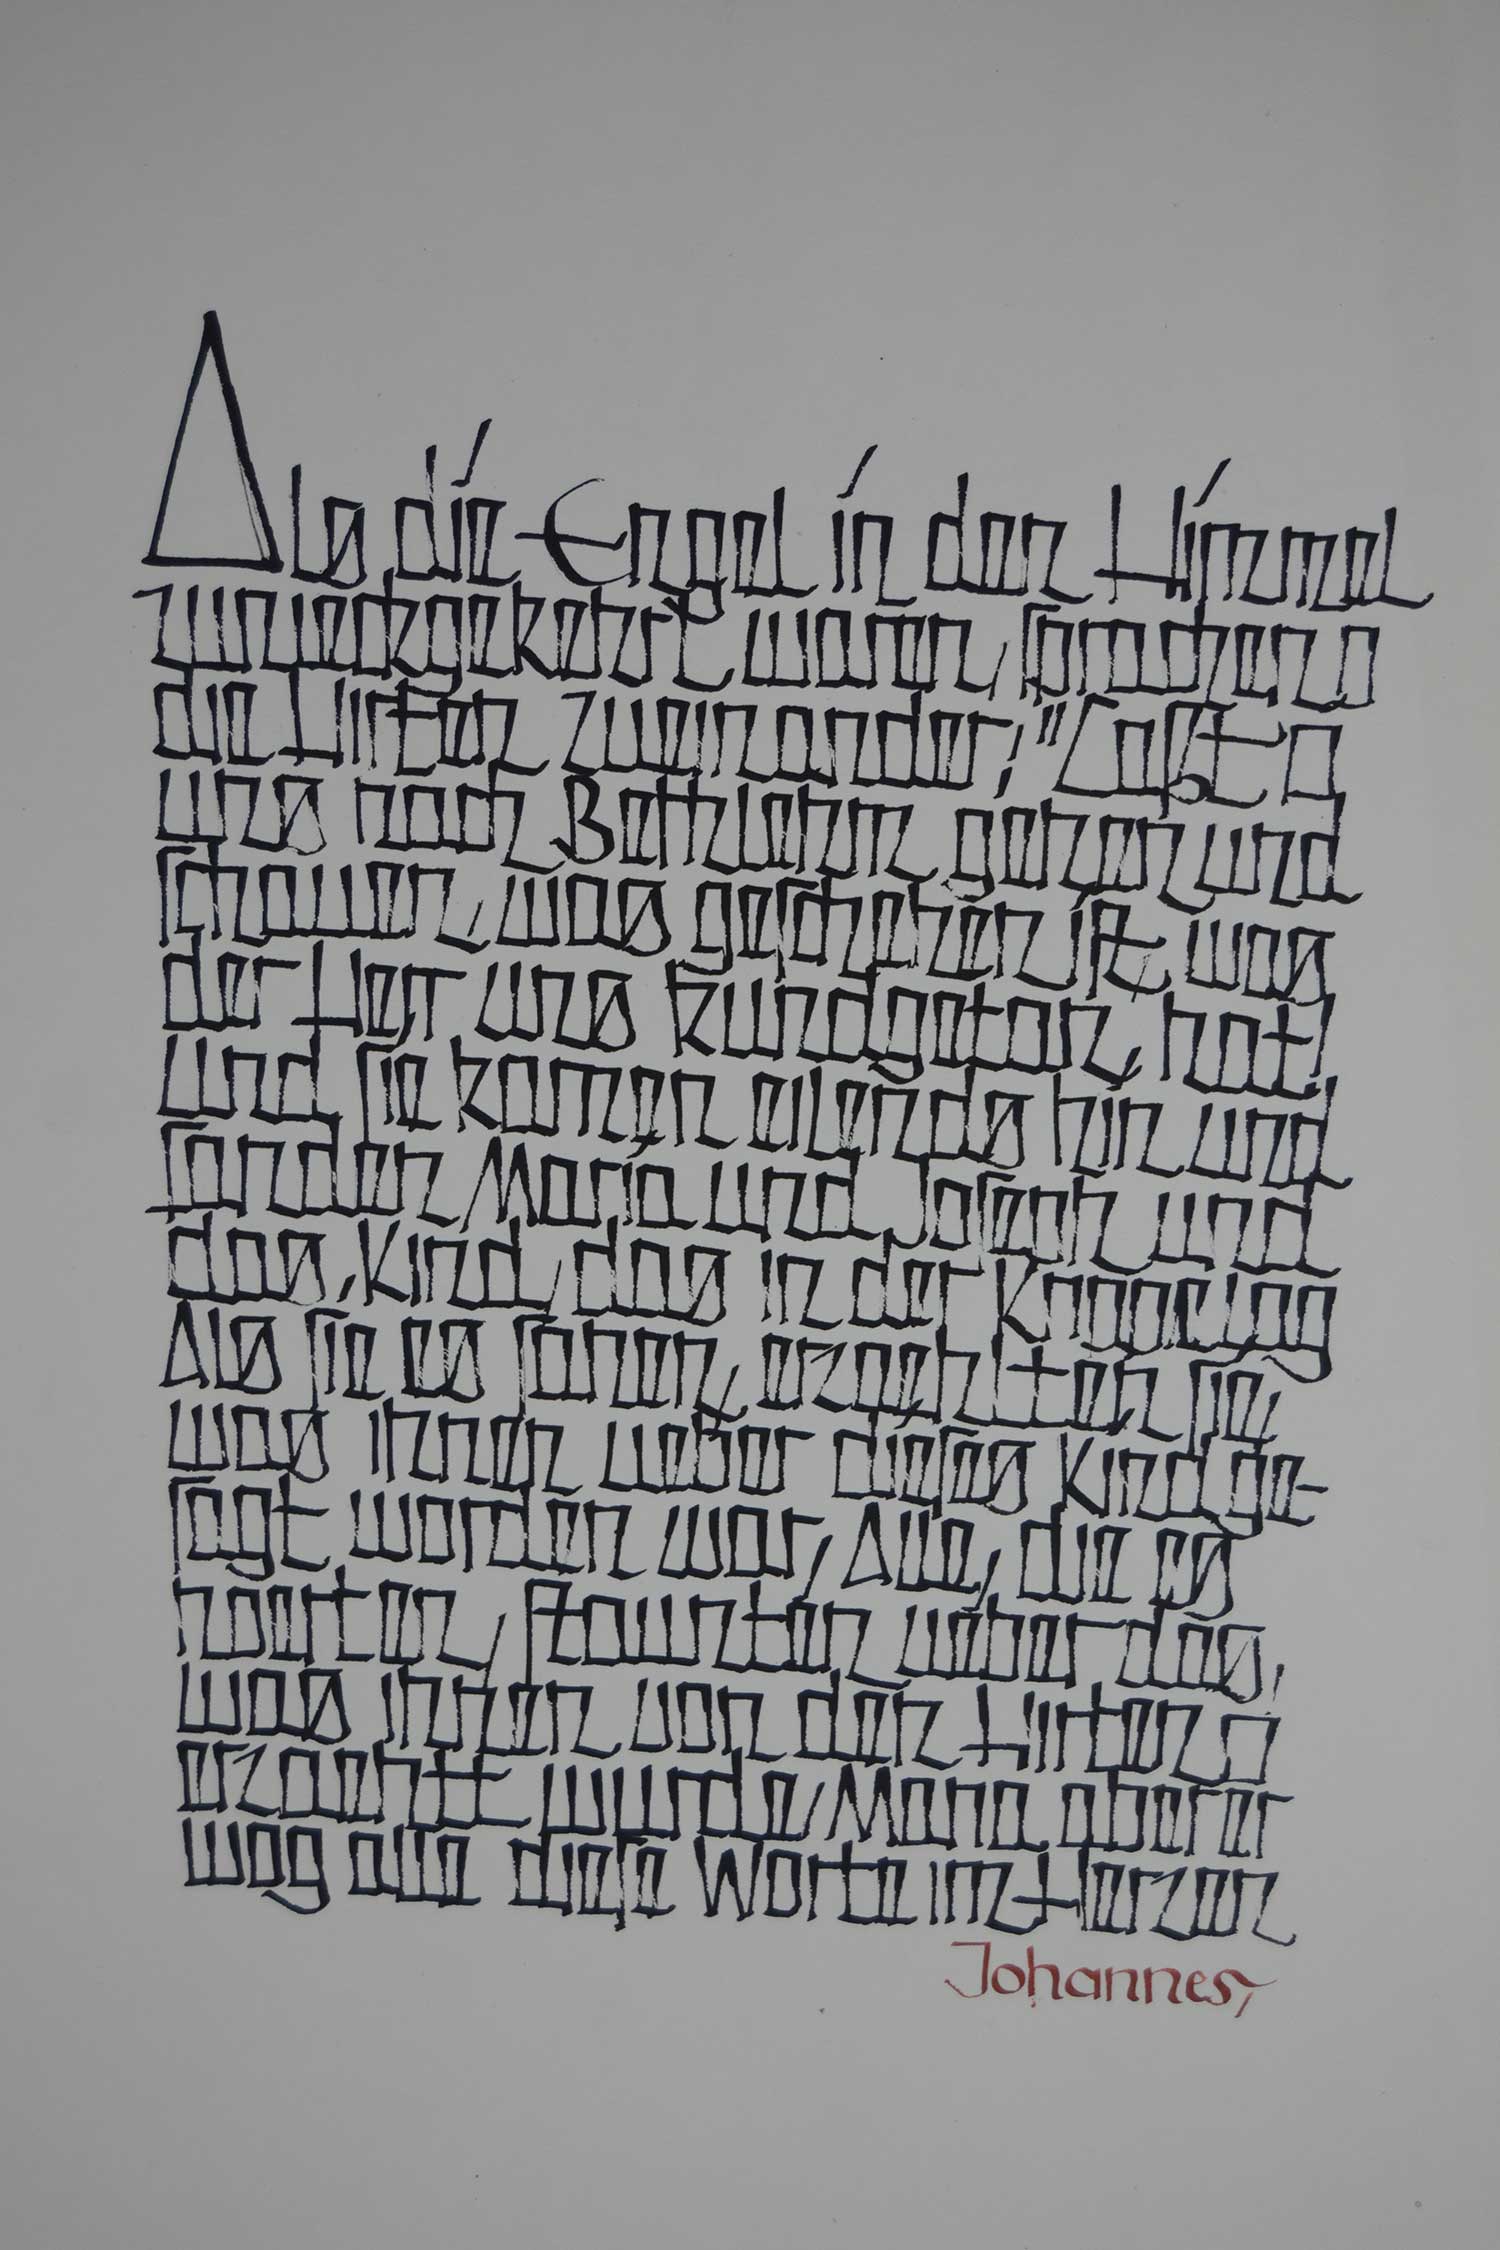 Als die Engel in den Himmel
zurueckgekehrt waren, sprachen
die Hirten zueinander: "Laßt
uns nach Bethlehem gehen und
schauen, was geschehen ist, was
der Herr uns kundgetan hat!
Und sie kamen eilends hin und
fanden Maria und Joseph und
das Kind, das in der Krippe lag
Als sie es sahen, erzaehlten sie,
was ihnen ueber dieses Kind ge-
sagt worden war, Alle, die es
hoerten, staunten ueber das,
was ihnen von den Hirten
erzaehlt wurde, Maria aber er
wog alle diese Worte im Herzen
Johannes,